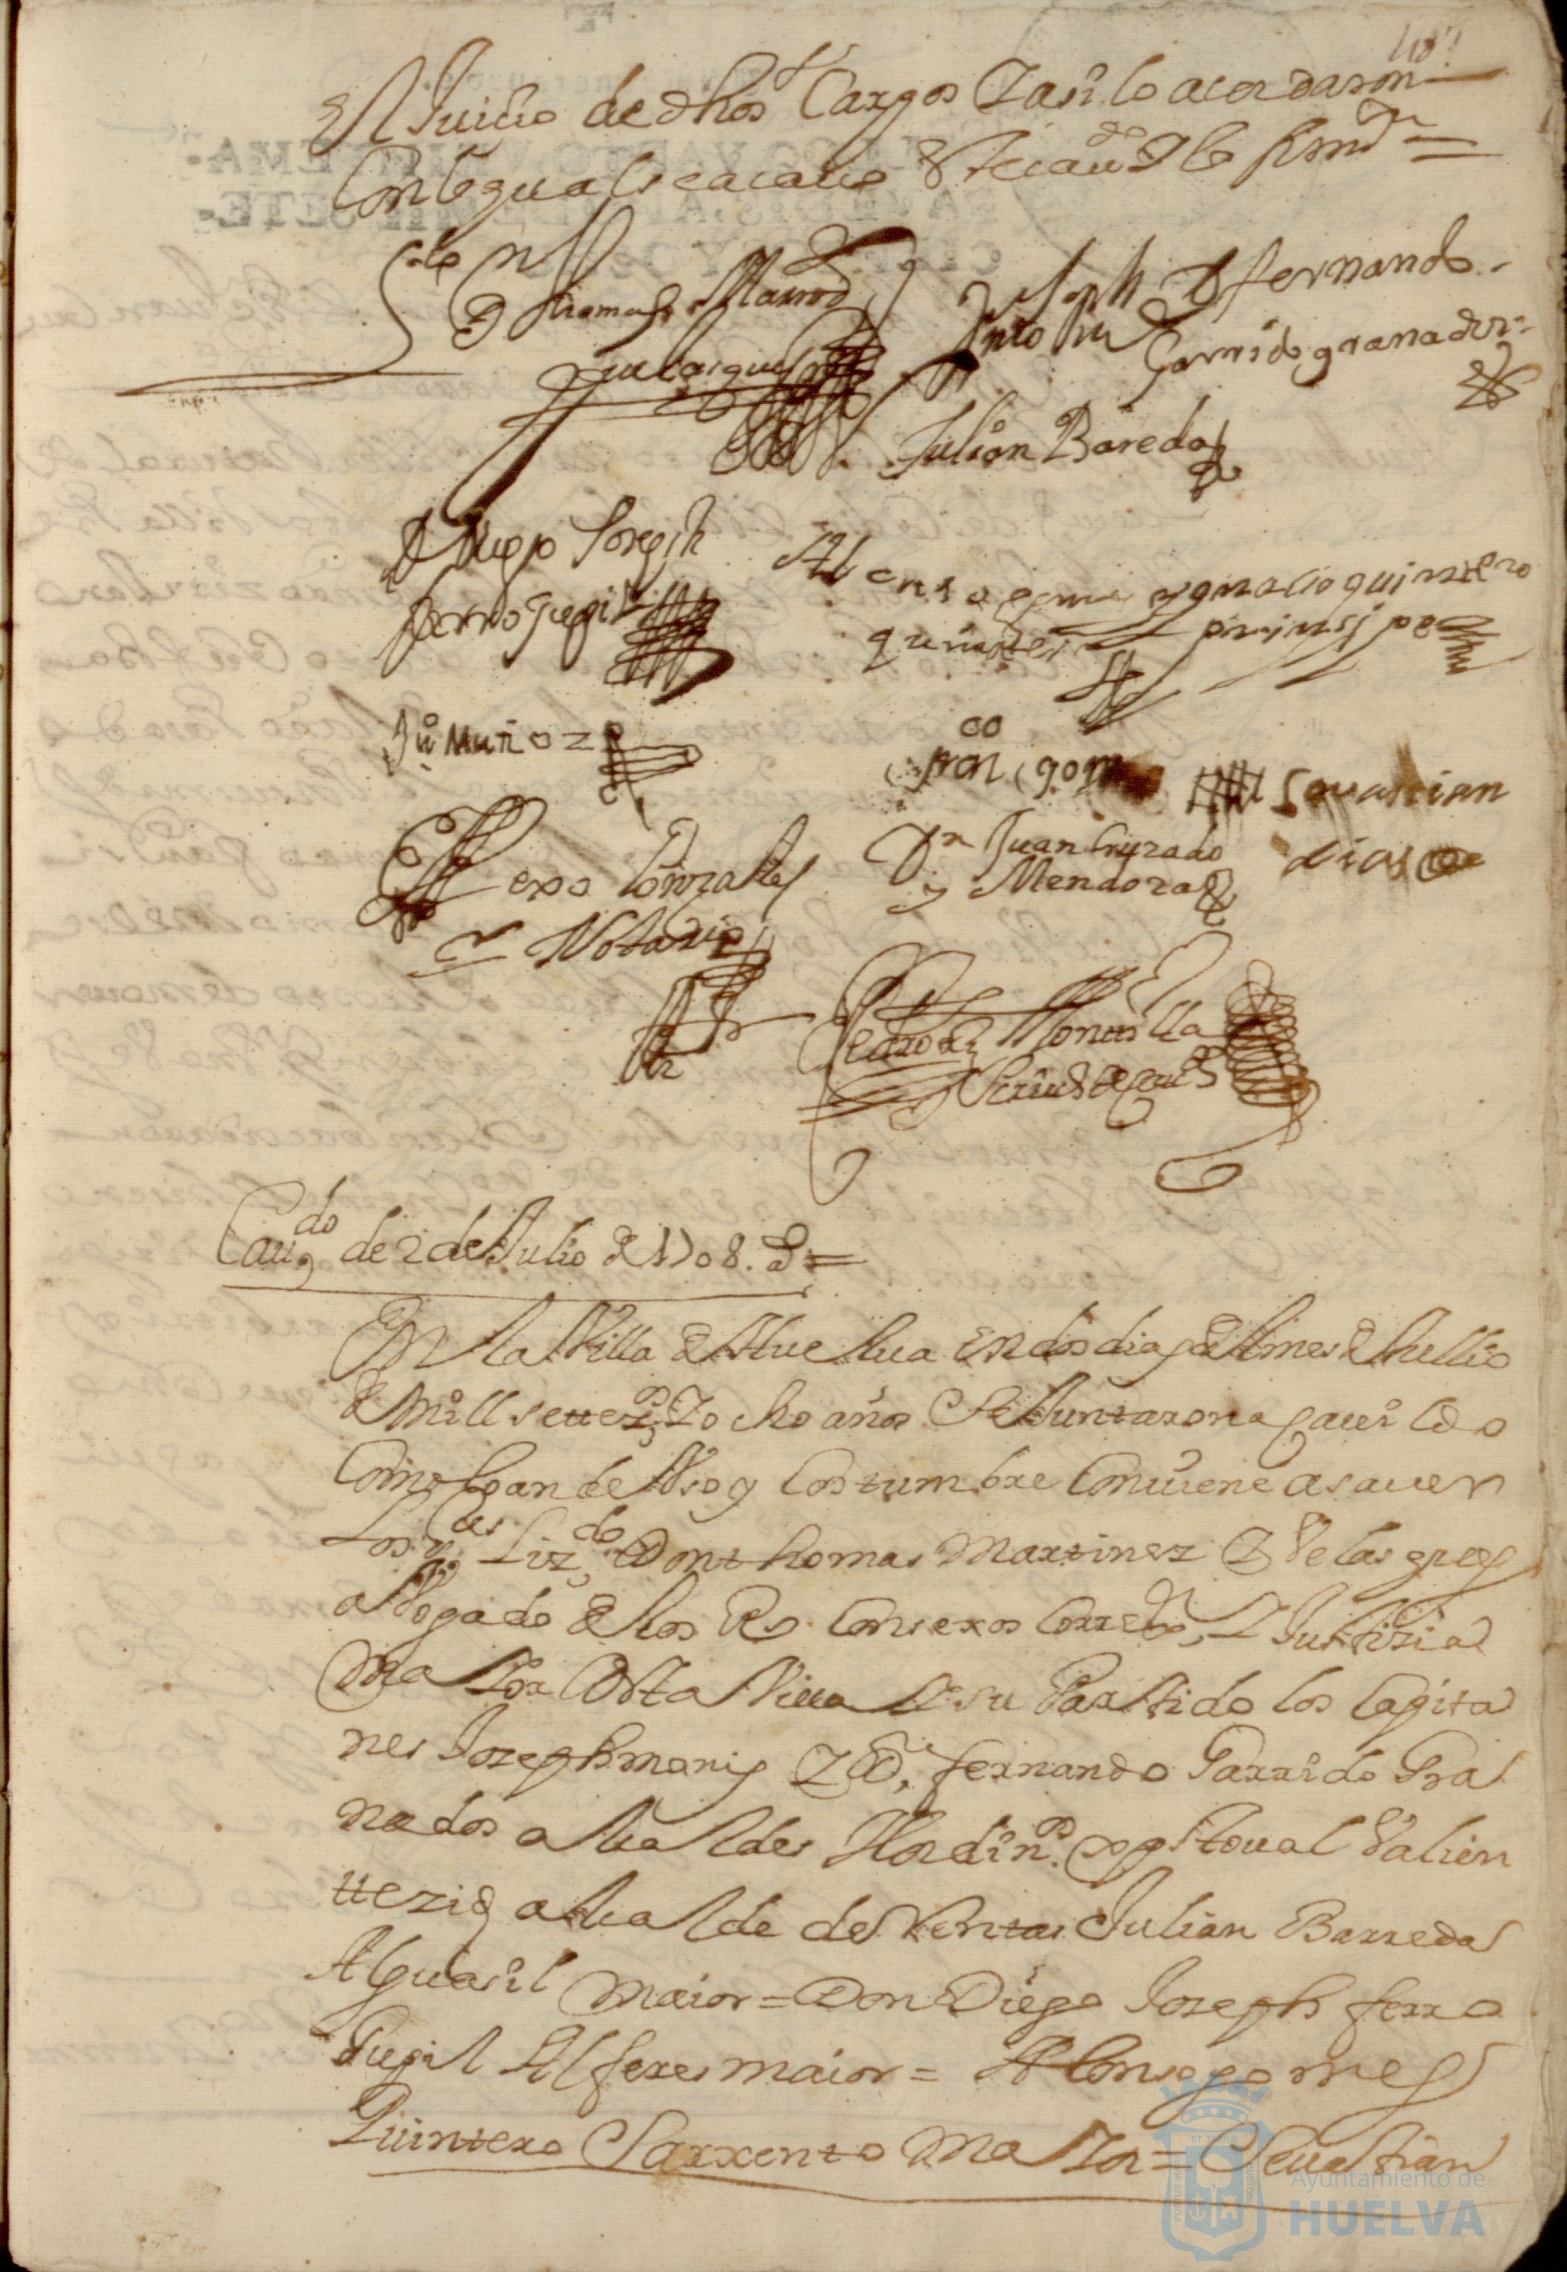 el Juicio de dhos Cargos Y asi lo acordaron
Con lo qual se acavo este cavdo Y lo firmn =
Lizdo Dn thomas Martinez
Velasques
Joseph
Dn fernando
Garrido granados
Julian Bareda
Dn Diego Joseph
ferro Pugil
Alonso gomes
quintero
ygnacio quintero
prinsipe
Ju Muñoz
fran gom
Sevastian
dias
Gonzales
Notario
Dn Juan Cruzado
y Mendoza
Pedro de Monesillo
Scriuo de Cauo
Caudo de 2 de Julio de 1708. as =
En la Villa de Huelua en dos dias del mes de Jullio
de mill settezs Y ocho años Se Juntaron a cauildo
Como lo an de Vso y Costumbre Conuiene asauer
Los Sres Lizdo Don thomas Martinez Y Velasques
abogado de los Rs Consexos Corregor Y Justizia
maYor desta Villa Y su Partido los Capita
nes Joseph moris Y D. fernando Garrido Gra
nados alcaldes Hordins xpstoual Valien
tte zid alcalde de Ventas Julian Barreda
Alguasil maior = Don Diego Joseph ferro
Pugil Alferes maior = Alonso gomes
Quintero Sarxento maYor = Seuastian
Ayuntamiento de
HUELVA